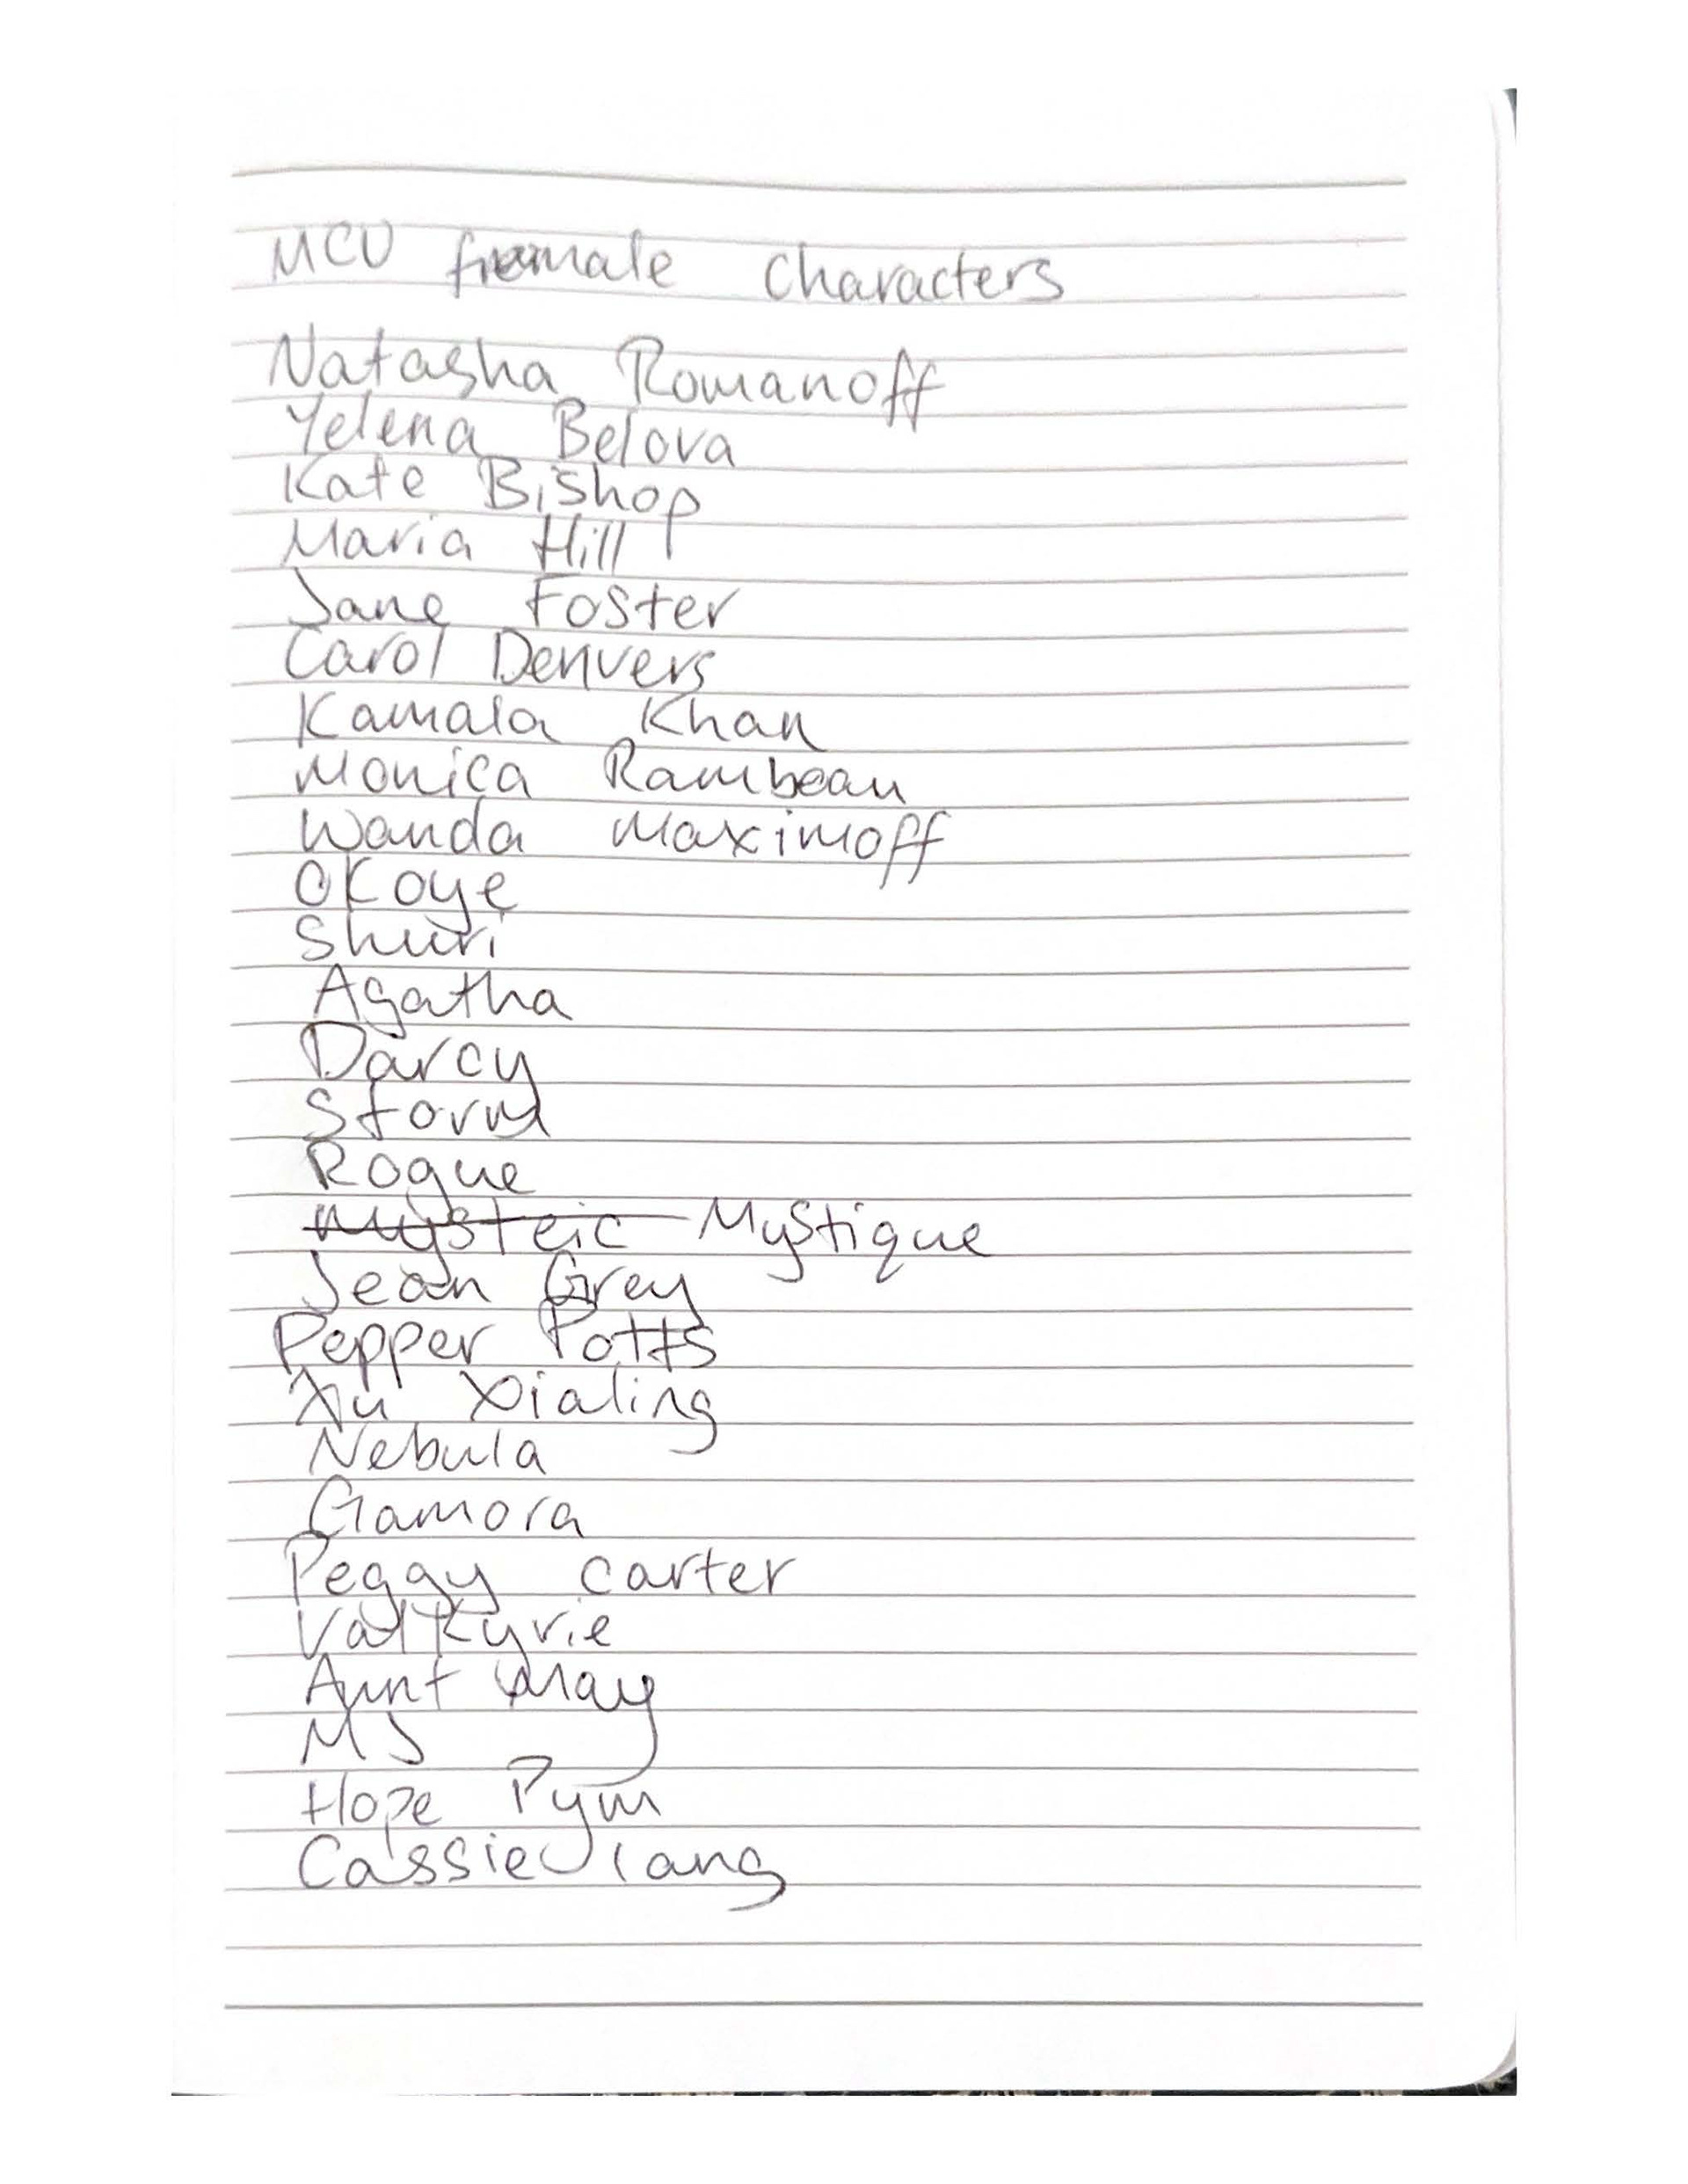 MCU female characters
Natasha Romanoff
Yelena Belova
Kate Bishop
Maria Hill
Jane Foster
Carol Denvers
Kamala Khan
Monica Rambeau
Wanda Maximoff
Okoye
Shuri
Agatha
Darcy
Storm
Rogue
Mysteic Mystique
Jean Grey
Pepper Potts
Xu Xialing
Nebula
Gamora
Peggy Carter
Valkyrie
Aunt May
MJ
Hope Pym
Cassie lang